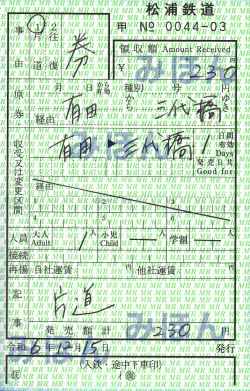 松浦鉄道
甲 № 0044-03
事由 ① 2 片 往 道 復 券
領収額 Amount Received
¥ 230 円
原券 月 日 から 有効 種別 号 円
有田 から 三代橋
経由
収受又は変更区間 有田 ▶ 三代橋 1 日間有効 Days
発売日共 Good for
経由
人員 大人 Adult 1 人 小児 Child 人 学割 人
接続
再掲 自社運賃 円 他社運賃 円
記事 片道
発売額計 230 円
令和 6 年 12 月 15 日 発行
(入鉄・途中下車印)
みほん
みほん
みほん